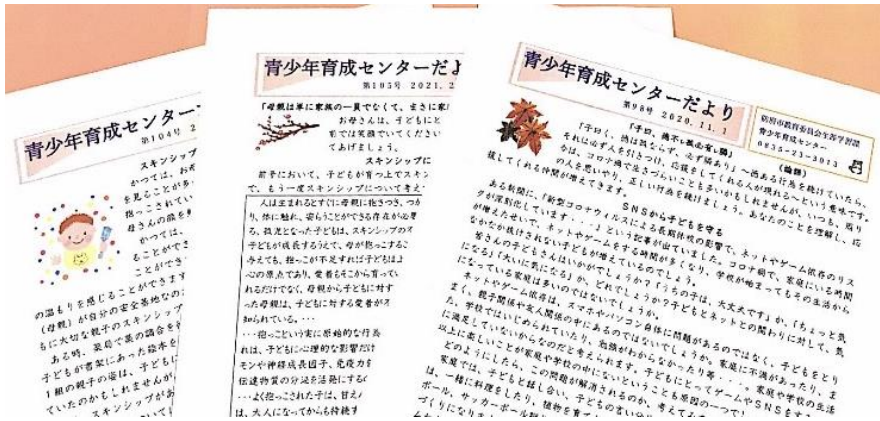 青少年育成センター
第104号 2
スキンシップ
かつては、お
を見ることが多
抱っこされてい
母さんの顔を
かつては、
ることができ
ことができ
の温もりを感じることができます
(母親)が自分の安全基地なの
もに大切な親子のスキンシップ
ある時、薬局で薬の調合を
子どもが書架にあった絵本を
1組の親子の姿は、子どもに
ていたのかもしれませんが
スキンシップがあ
青少年育成センターだよ
第105号 2021.2
「母親は単に家族の一員でなくて、まさに家
お母さんは、子どもにと
前では笑顔でいてください
てあげましょう。
スキンシップに
前号において、子どもが育つ上でスキン
で、もう一度スキンシップについて考え
人は生まれるとすぐに母親に抱きつき、つか
り、体に触れ、安らうことができる存在が必要
る。孤児となった子どもは、スキンシップの不
子どもが成長するうえで、母が抱っこするこ
与えても、抱っこが不足すれば子どもはよ
心の原点であり、愛着もそこから育ってい
れるだけでなく、母親から子どもに対す
った母親は、子どもに対する愛着が不
知られている。・・・
・・・抱っこという実に原始的な行為
れは、子どもに心理的な影響だけ
モンや神経成長因子、免疫力を
伝達物質の分泌を活発にする
・・・よく抱っこされた子は、甘え
は、大人になってからも持続す
青少年育成センターだより
第98号 2020.11.1
防府市教育委員会生涯学習課
青少年育成センター
0835-23-3013
「子曰、徳不孤必有隣」
(論語)
「子曰く、徳は孤ならず、必ず隣あり」~徳ある行為を続けていたら、
それは必ず人を引きつけ、応援をしてくれる人が現れる~という意味です。
今は、コロナ禍で生きづらいことも多いかもしれませんが、いつも、周り
の人を思いやり、正しい行為を続けましょう。あなたのことを理解し、応
援してくれる仲間が増えてきます。
SNSから子どもを守る
ある新聞に、「新型コロナウィルスによる長期休校の影響で、ネットやゲーム依存のリス
クが深刻化しています・・・」という記事が出ていました。コロナ禍で、家庭にいる時間
が増えたせいで、ネットやゲームをする時間が多くなり、学校が始まってもその生活から
なかなか抜けきれない子どもが増えているのでしょう。
皆さんの子どもさんはいかがでしょうか?「うちの子は、大丈夫です」か、「ちょっと気
になる」「大いに気になる」か、どれでしょうか?子どもとネットとの関わりに対して、気
になっている家庭は多いのではないでしょうか。
ネットやゲーム依存は、スマホやパソコン自体に問題があるのではなく、子どもをとり
まく、親子関係や友人関係の中にあるのではないでしょうか。家庭に不満があったり、ま
た、学校ではいじめられていたり、勉強がわからなかったり等・・・、家庭や学校の生活
に満足していないからなのだと考えられます。子どもにとってゲームやSNSをする
以上に楽しいことが家庭や学校の中にないということも原因の一つで
どのようにしたら、この問題が解消されるのか、考えてみ
家庭では、子どもと話し合い、子どもの言い分
は、一緒に料理をしたり、植物を育て
ボール、サッカーボール
づくりになりま